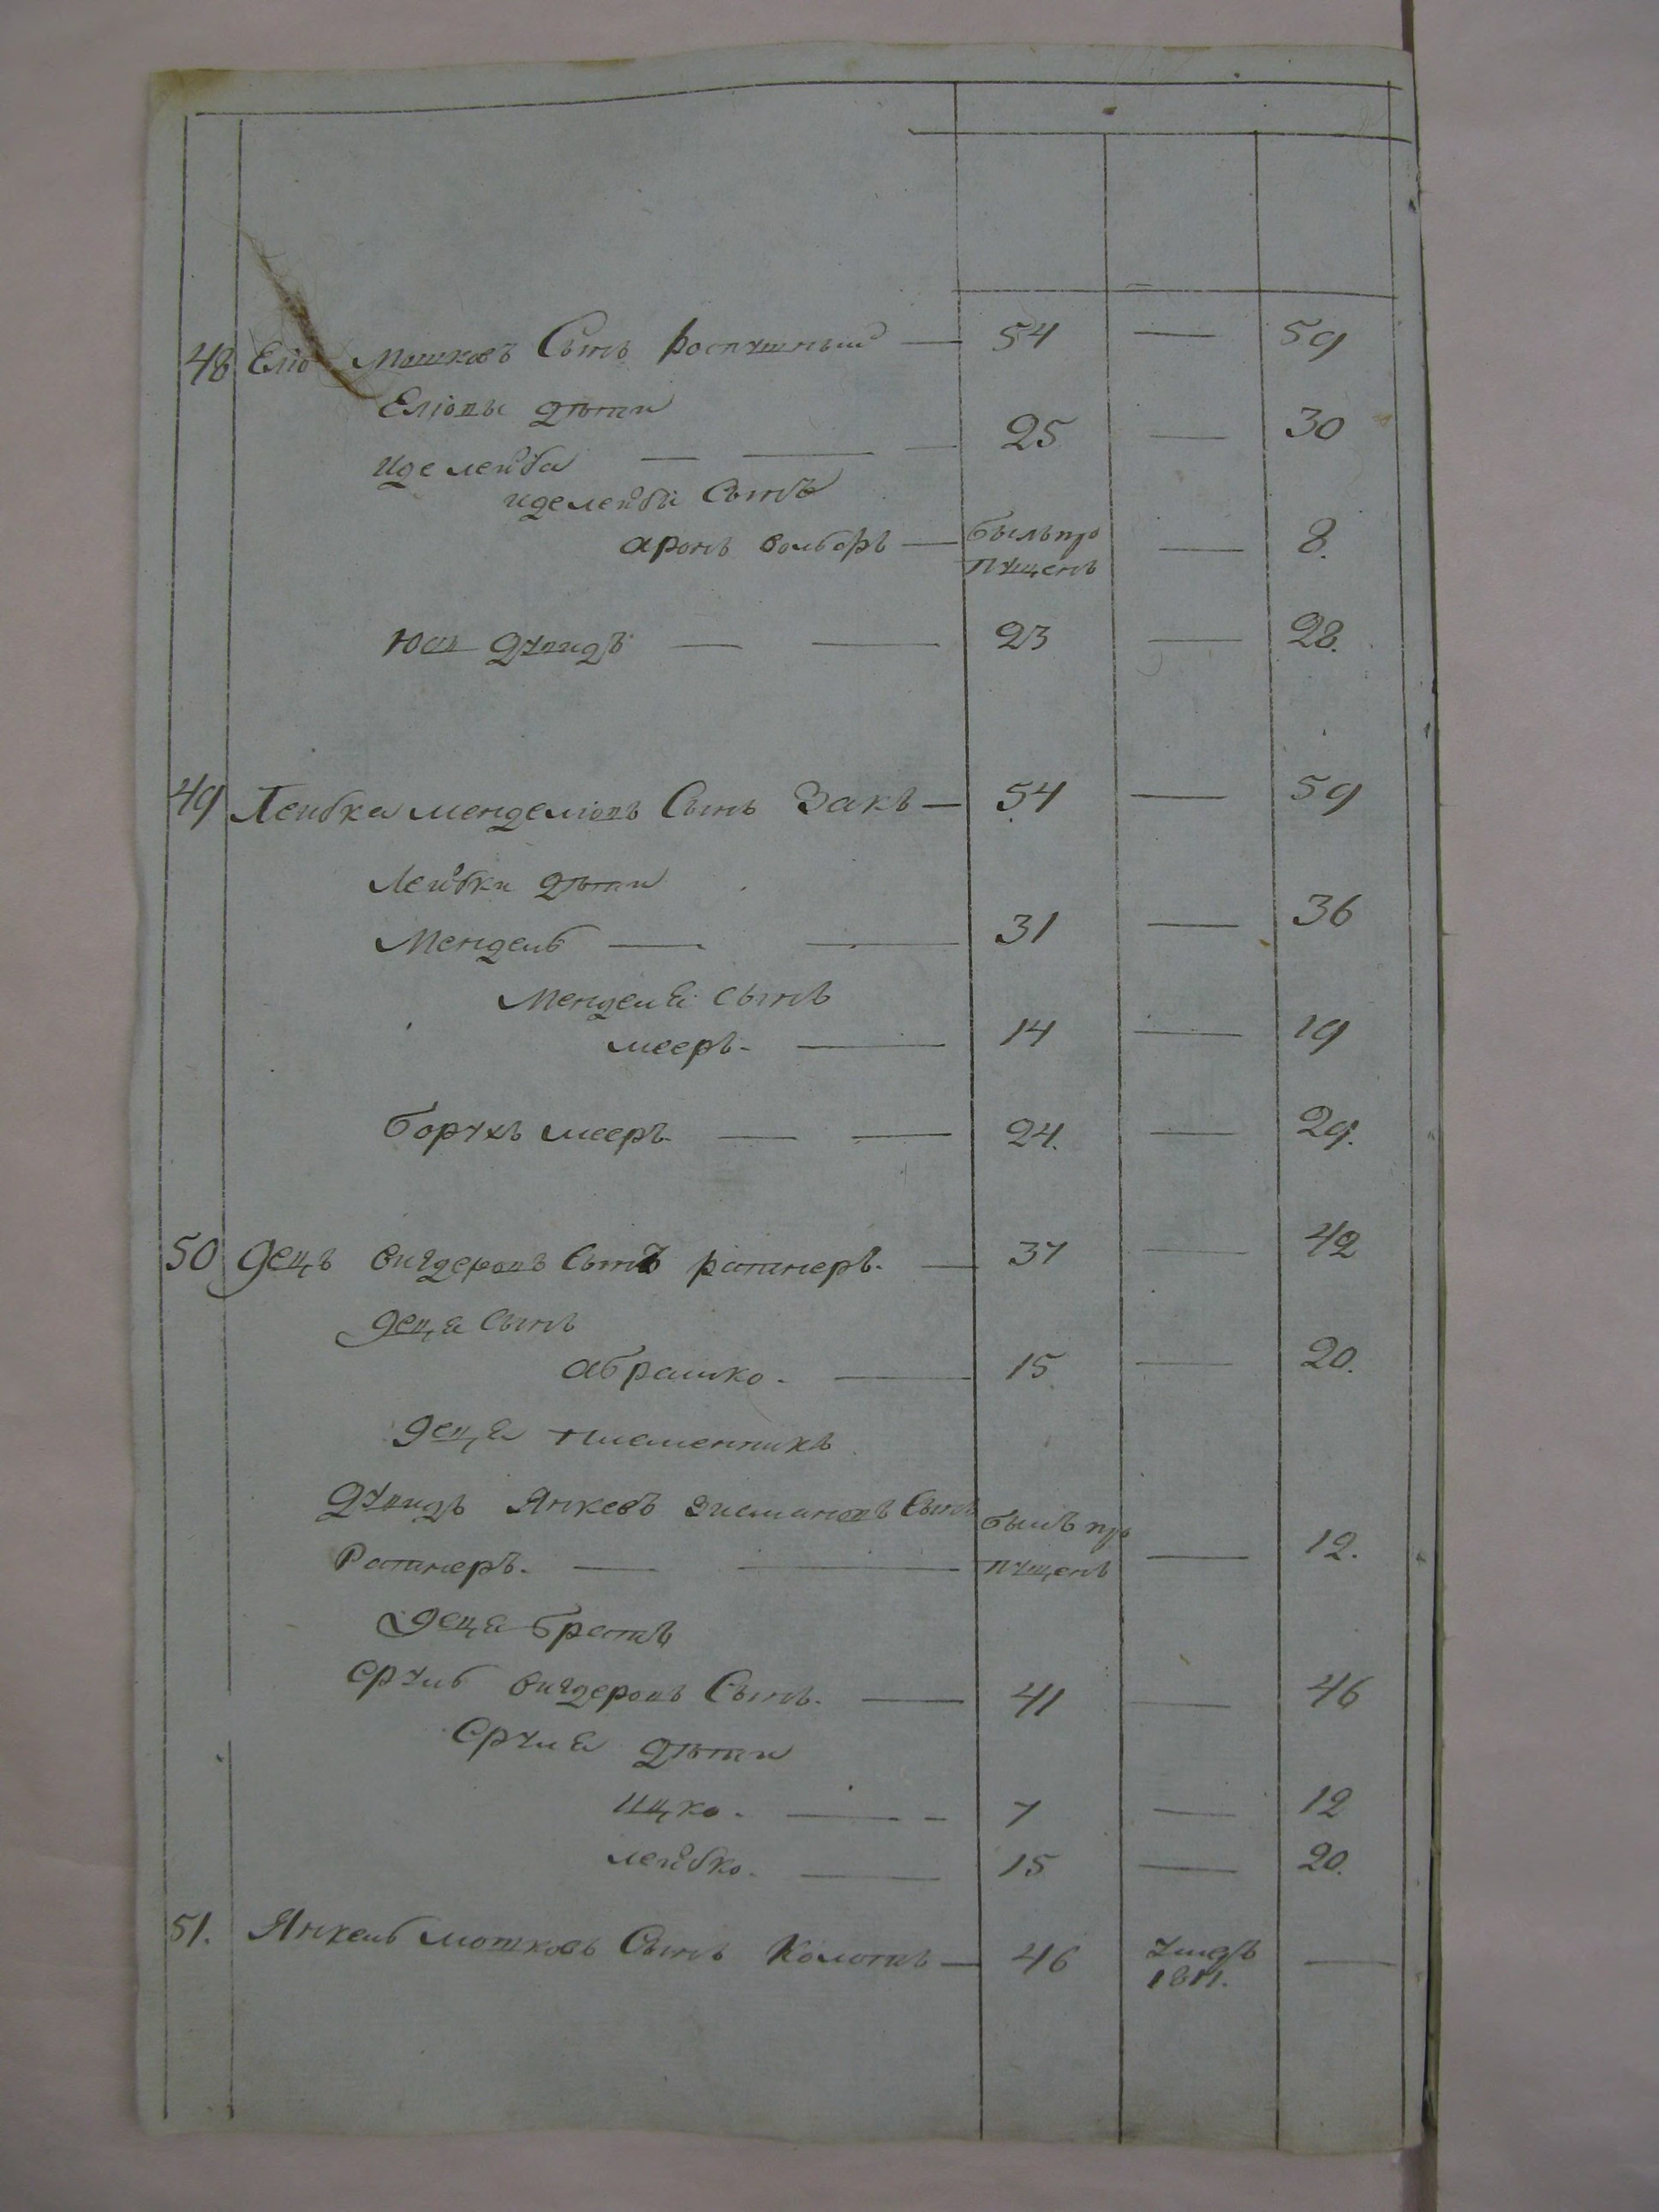 48 Еліо Мошковъ Сынъ роспутный — 54 — 59
Еліовы дѣти
Иделейба — — — 25 — 30
иделейбы Сынъ
аронъ волборъ — былъ про — 8.
пущенъ
Юсл дувидъ — — 23 — 28.
49 Лейбка менделіовъ Сынъ Закъ — 54 — 59
Лейбки дѣти
Мендель — — 31 — 36
Менделя Сынъ
мееръ. — 14 — 19
борухъ мееръ. — — 24. — 29.
50 децъ вигдеровъ Сынъ ратнеръ. — 37 — 42
деца Сынъ
абрашко. — 15 — 20.
деца племенникъ
дувидъ Янкевъ зисмановъ Сынъ былъ про
Ратнеръ. — — пущенъ — 12.
деца братъ
Сруль вигдеровъ Сынъ. — 41 — 46
Сруля дѣти
Ицко. — - 7 — 12
лейбко. — 15 — 20.
51. Янкель мошковъ Сынъ Коломъ — 46 умеръ —
1811.